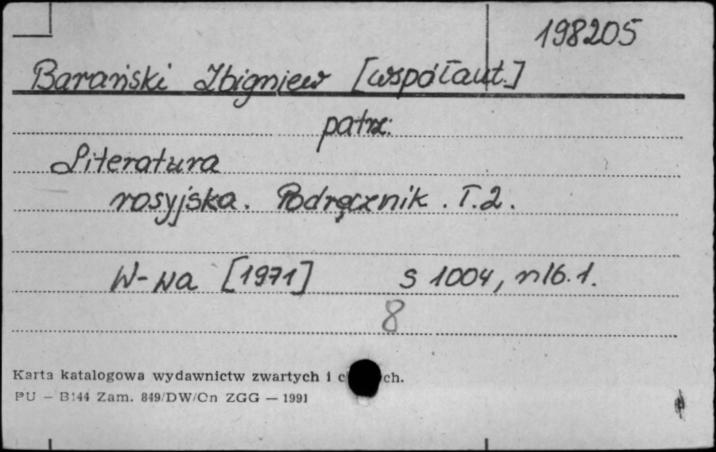 198205
Barański Zbigniew [współaut.]
patrz:
Literatura
rosyjska. Podręcznik. T.2.
W-wa [1971] s 1004, nlb. 1.
8
Karta katalogowa wydawnictw zwartych i ch.
PU — B144 Zam. 849/DW/Cn ZGG — 1991